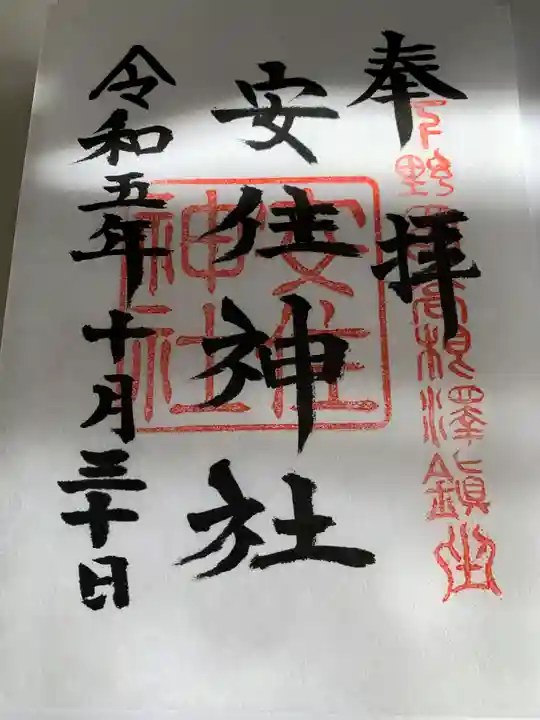 奉拝
下野國高根澤鎮坐
安住神社
安住神社
令和五年十月三十日